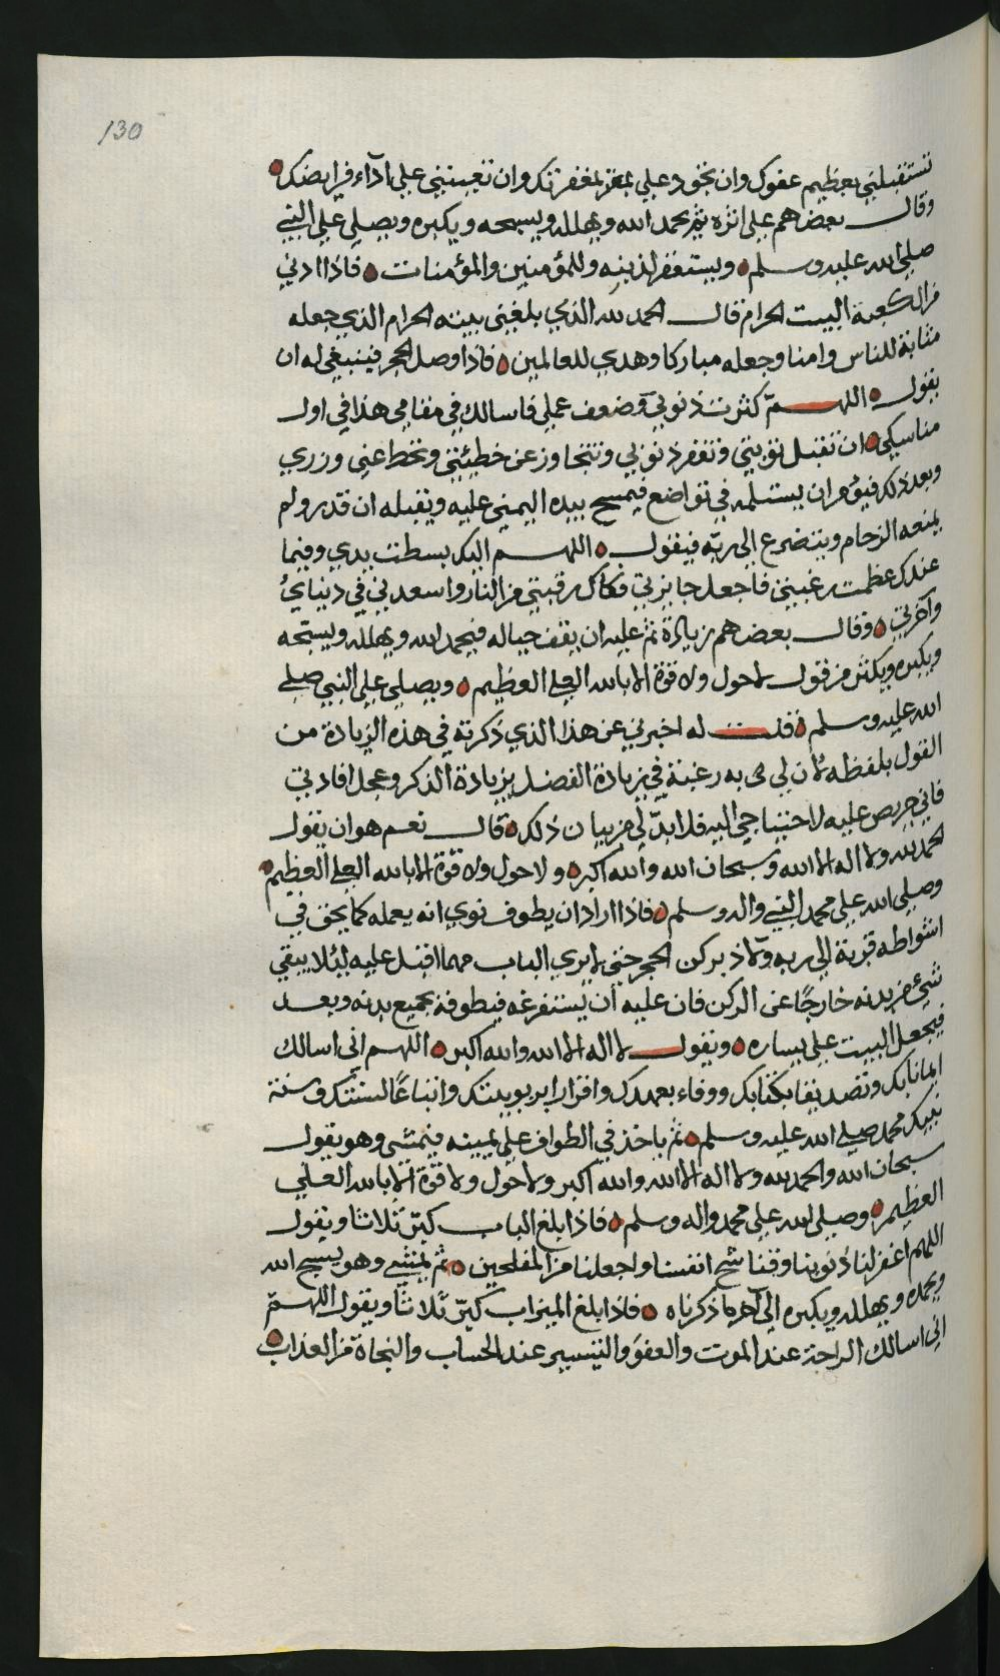 130
تستقبلني بعظيم عفوك وان تجود علي بمغفرتك وان تعينني علي اداء فرايضك
وقال بعضهم علي اثره ثم يحمد الله ويهلله ويسبحه ويكبره ويصلي علي النبي
صلي الله عليه وسلم ويستغفر لذنبه وللمؤمنين والمؤمنات فاذا ادني
من الكعبة البيت الحرام قال الحمد لله الذي بلغني بيته الحرام الذي جعله
مثابة للناس وامنا وجعله مباركا وهدي للعالمين فاذا وصل الحجر فينبغي له ان
يقول اللهم كثرت ذنوبي وضعف عملي فاسالك في مقامي هذا في اول
مناسكي ان تقبل توبتي وتغفر ذنوبي وتتجاوز عن خطيئتي وتحط عني وزري
وبعد ذلك فيؤمر ان يستلمه في تواضع فيمسح بيده اليمني عليه ويقبله ان قدر ولم
يمنعه الزحام ويتضرع الي ربه فيقول اللهم اليك بسطت يدي وفيما
عندك عظمت رغبتي فاجعل جايزتي فكاك رقبتي من النار واسعدني في دنياي
وآخرتي وقال بعضهم زيادة ثم عليه ان يقف حياله فيحمد الله ويهلله ويسبّحه
ويكبره ويكثر من قول لا حول ولا قوة الا بالله العلي العظيم ويصلي علي النبي صلي
الله عليه وسلم قلت له اخبرني عن هذا الذي ذكرته في هذه الزيادة من
القول بلفظه لان لي به رغبة في زيادة الفضل بزيادة الذكر وعجل افادتي
فاني حريص عليه لاحتياجي اليه فلابدّ لي من بيان ذلك قال نعم هو ان يقول
الحمد لله ولا اله الا الله وسبحان الله والله اكبر ولا حول ولا قوة الا بالله العلي العظيم
وصلي الله علي محمد النبي واله وسلم فاذا اراد ان يطوف نوي انه يعمله كما يحق في
اشواطه قربة الي ربه ولاذ بركن الحجر حتي لا يري الباب مهما اقبل عليه لئلا يبقي
شيء من بدنه خارجًا عن الركن فان عليه ان يستفرغه فيطوفه بجميع بدنه وبعد
فيجعل البيت علي يساره ويقول لا اله الا الله والله اكبر اللهم اني اسالك
ايمانا بك وتصديقا بكتابك ووفاء بعهدك واقرارا بربوبيتك واتباعًا لسنتك وسنة
نبيك محمد صلي الله عليه وسلم ثم ياخذ في الطواف علي يمينه فيمشي وهو يقول
سبحان الله والحمد لله ولا اله الا الله والله اكبر ولا حول ولا قوة الا بالله العلي
العظيم وصلي الله علي محمد واله وسلم فاذا بلغ الباب كبّر ثلاثا ويقول
اللهم اغفر لنا ذنوبنا وقنا شح انفسنا واجعلنا من المفلحين ثم يمشي وهو يسبح الله
ويحمده ويهلله ويكبره الي آخر ما ذكرناه فاذا بلغ الميزاب كبّر ثلاثا ويقول اللهمّ
اني اسالك الراحة عند الموت والعفو والتيسير عند الحساب والنجاة من العذاب